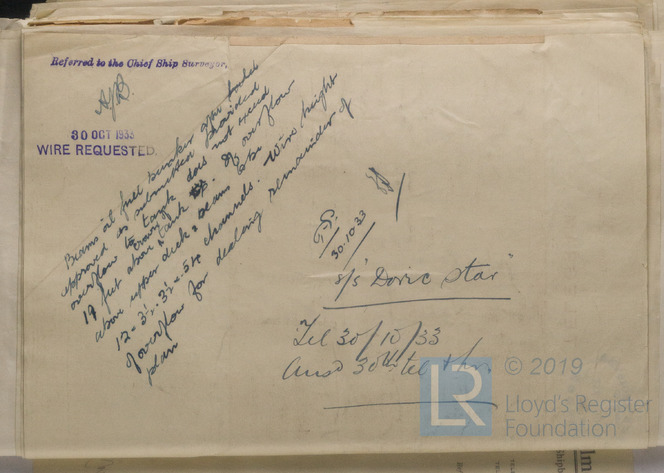 Referred to the Chief Ship Surveyor.
30 OCT 1933
WIRE REQUESTED.
Beams oil fuel bunker
approved as submitted provided
overflow to tank does not exceed
19 feet above tank or overflow
above upper deck & beams be
12 - 3½ - 3½ - channels. Wire height
of overflow for dealing remainder of
plan
30.10.33
s/s "Doric Star"
Tel 30/10/33
Ansd 30th tel
LR
© 2019
Lloyd's Register
Foundation